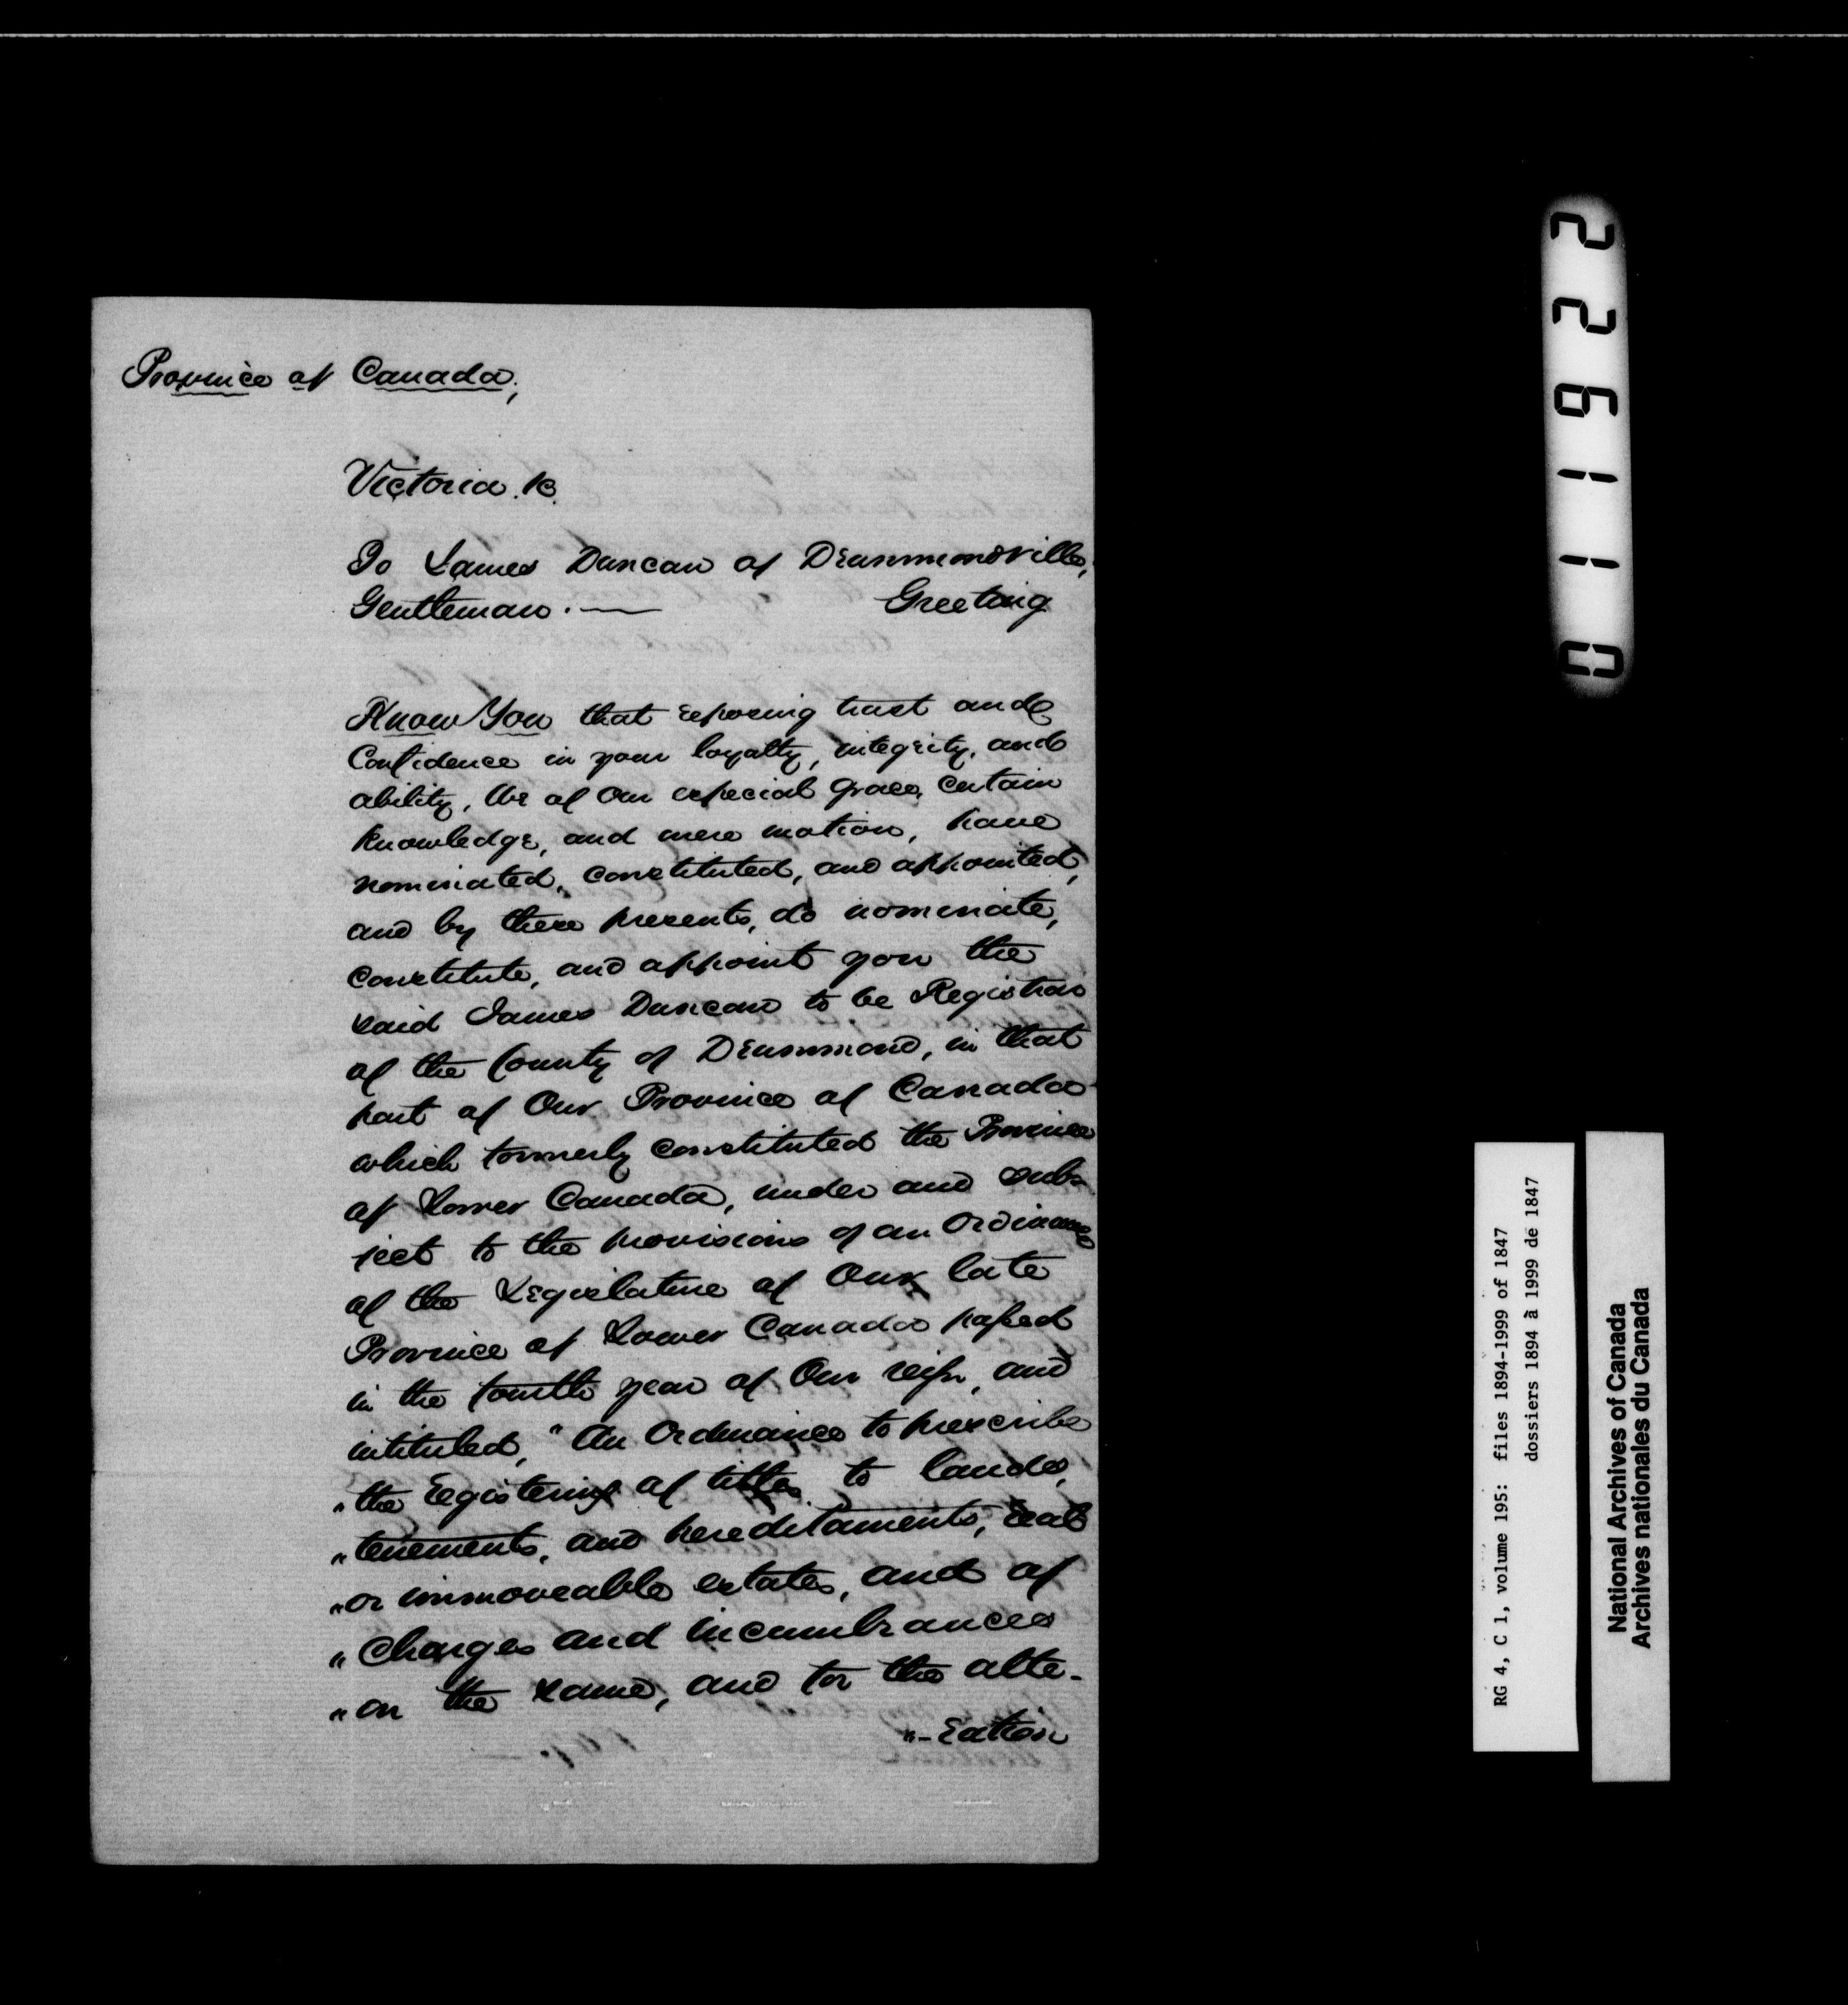 Province of Canada,
Victoria. R.
To James Duncan of Drummondville,
Gentleman. — Greeting
Know You that reposing trust and
Confidence in your loyalty, integrity, and
ability, We of Our especial grace, certain
knowledge, and mere motion, have
nominated, constituted, and appointed,
and by these presents, do nominate,
constitute, and appoint you the
said James Duncan to be Registrar
of the County of Drummond, in that
part of Our Province of Canada
which formerly constituted the Province
of Lower Canada, under and sub-
ject to the provisions of an Ordinance
of the Legislature of Our late
Province of Lower Canada passed
in the fourth year of Our reign, and
intituled, "An Ordinance to prescribe
"the registering of titles to lands,
"tenements, and hereditaments, real
"or immoveable estates, and of
"Charges and incumbrances
"on the same, and for the alte-
"-ration
011922
RG 4, C 1, volume 195: files 1894-1999 of 1847
dossiers 1894 à 1999 de 1847
National Archives of Canada
Archives nationales du Canada